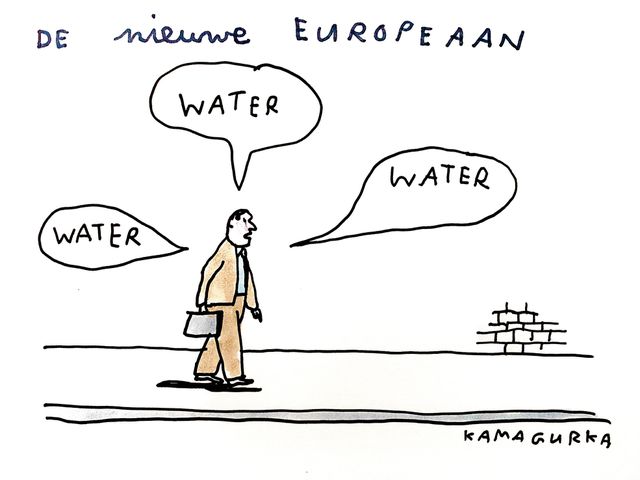 DE nieuwe EUROPEAAN
WATER
WATER
WATER
KAMAGURKA